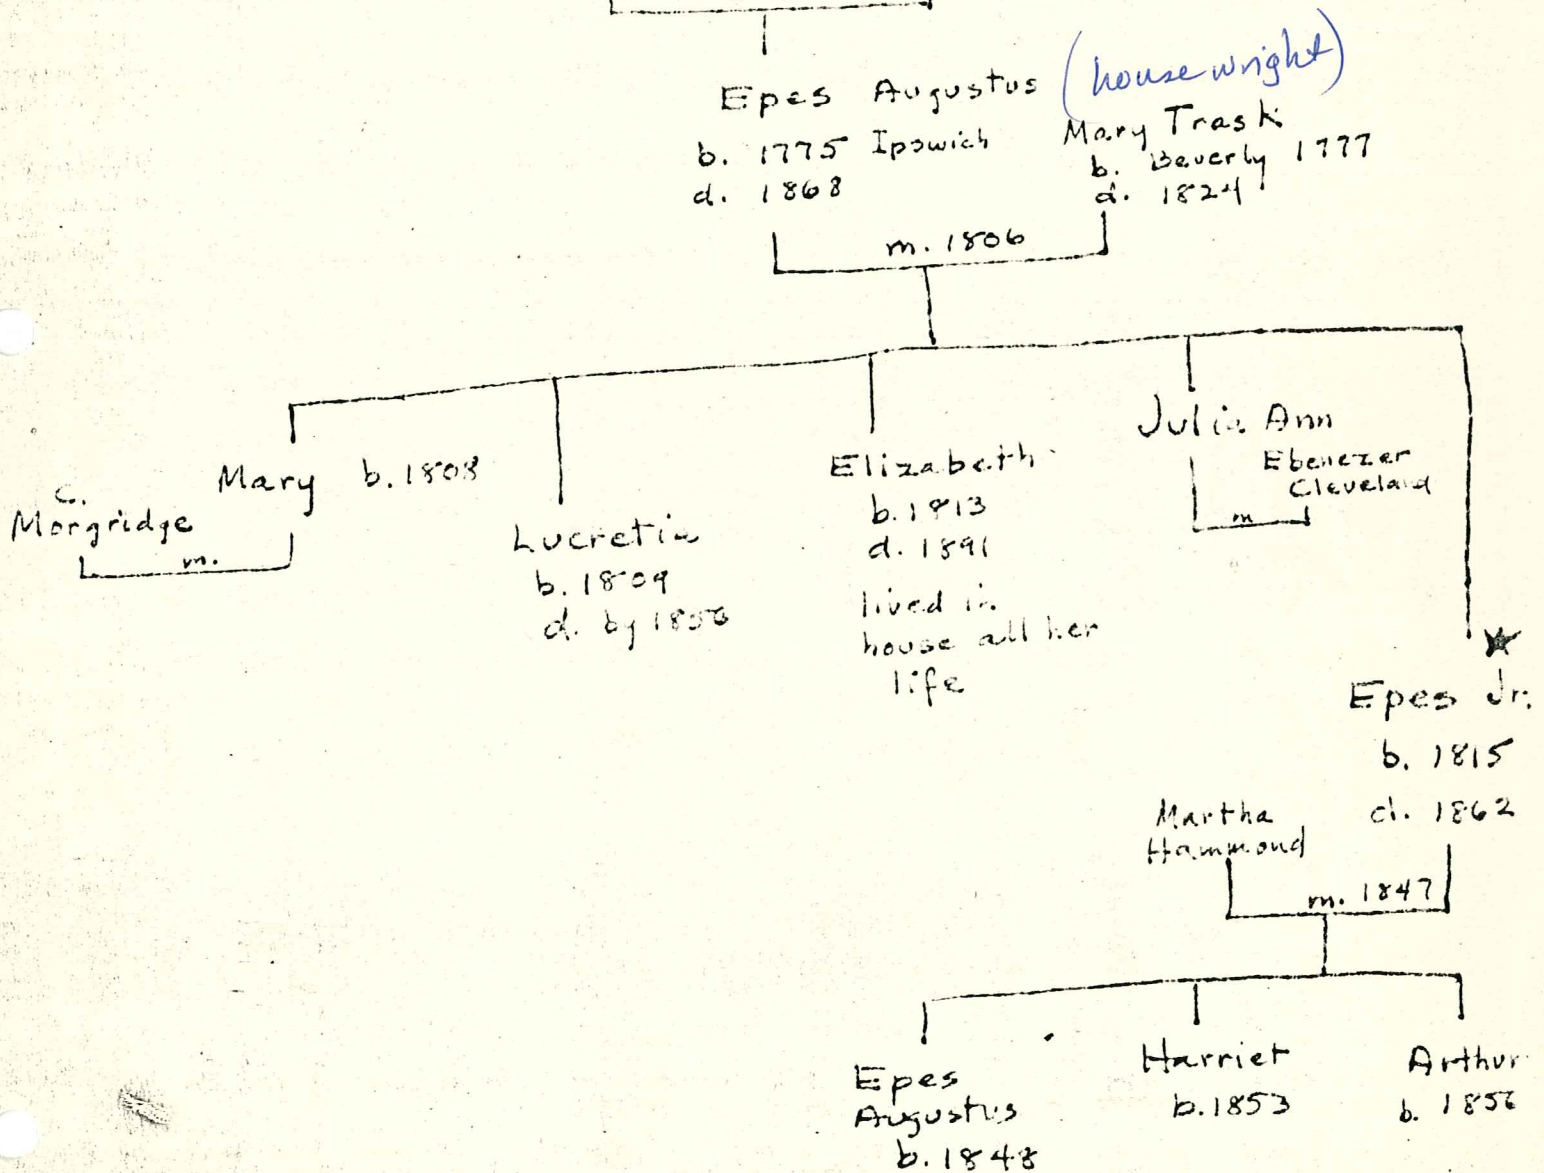 Epes Augustus (housewright)
b. 1775 Ipswich
d. 1868
Mary Trask
b. Beverly 1777
d. 1824
m. 1806
C.
Morgridge
m.
Mary b. 1808
Lucretia
b. 1809
d. by 1856
Elizabeth
b. 1813
d. 1891
lived in
house all her
life
Julia Ann
Ebenezer
Cleveland
m
Epes Jr.
b. 1815
d. 1862
Martha
Hammond
m. 1847
Epes
Augustus
b. 1848
Harriet
b. 1853
Arthur
b. 1856